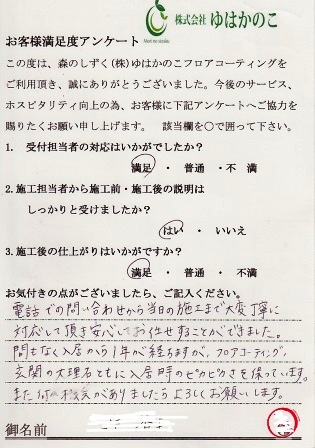 株式会社 ゆはかのこ
お客様満足度アンケート
この度は、森のしずく(株)ゆはかのこフロアコーティングを
ご利用頂き、誠にありがとうございました。今後のサービス、
ホスピタリティ向上の為、お客様に下記アンケートへご協力を
賜りたくお願い申し上げます。 該当欄を〇で囲って下さい。
1. 受付担当者の対応はいかがでしたか?
満足 ・ 普通 ・不 満
2.施工担当者から施工前・施工後の説明は
しっかりと受けましたか?
はい ・ いいえ
3.施工後の仕上がりはいかがですか?
満足 ・ 普通 ・ 不満
お気付きの点がございましたら、ご記入ください。
電話での問い合わせから当日の施工まで大変丁寧に
対応して頂き安心してお任せすることができました。
間もなく入居から1年が経ちますが、フロアコーティング、
玄関の大理石ともに入居時のピカピカさを保っています。
また何か機会がありましたらよろしくお願いします。
御名前